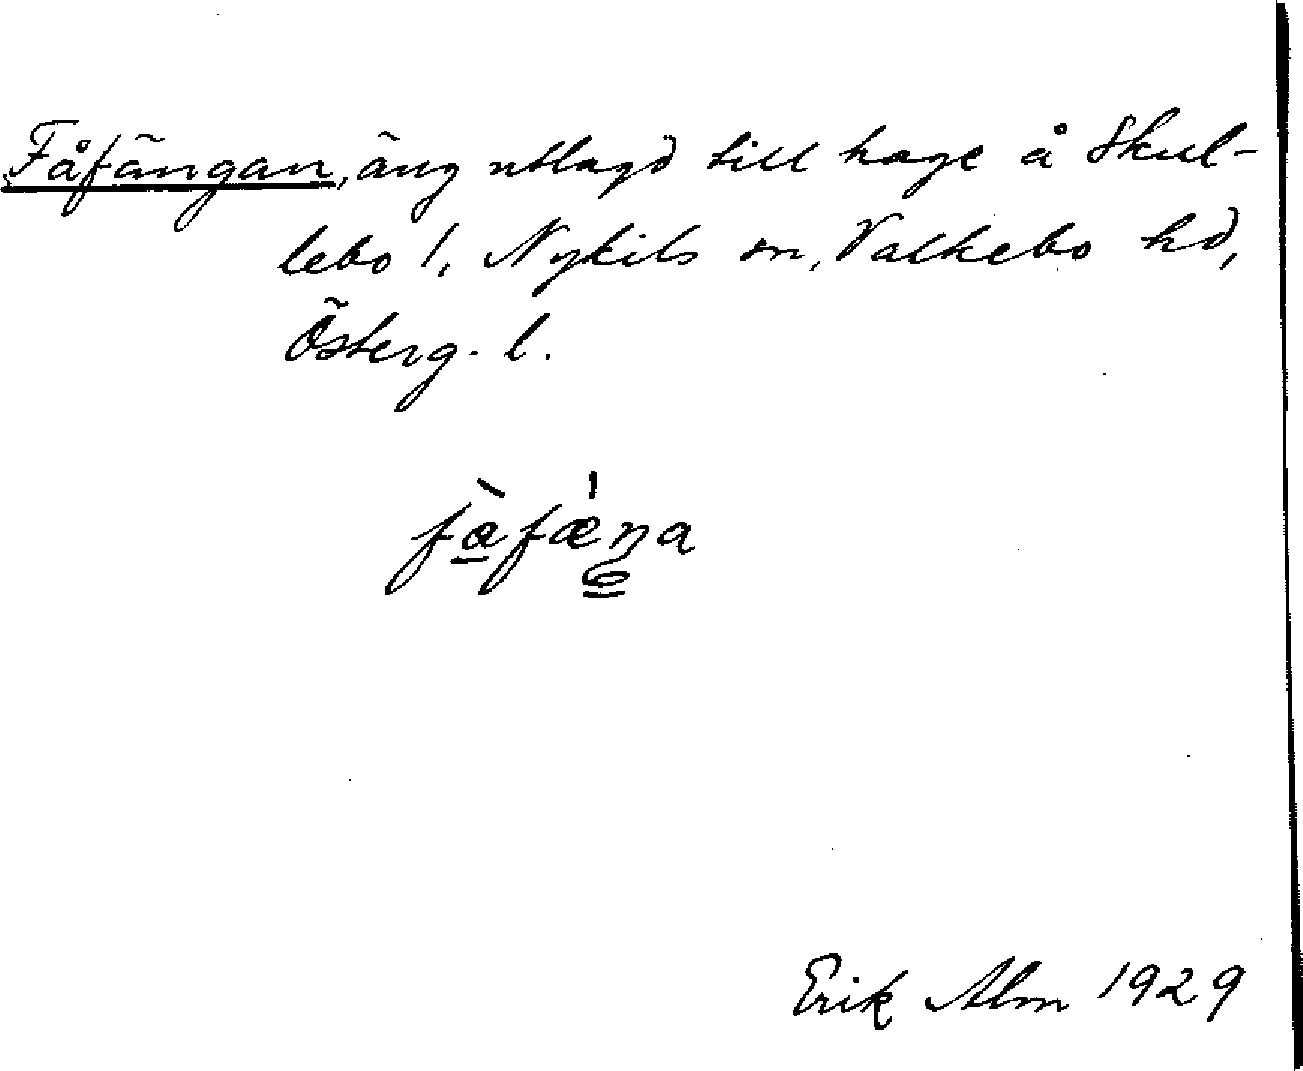 Fåfängan, äng utlagd till hage å Skul-
lebo 1, Nykils sn, Valkebo hd,
Österg. l.
Erik Alm 1929